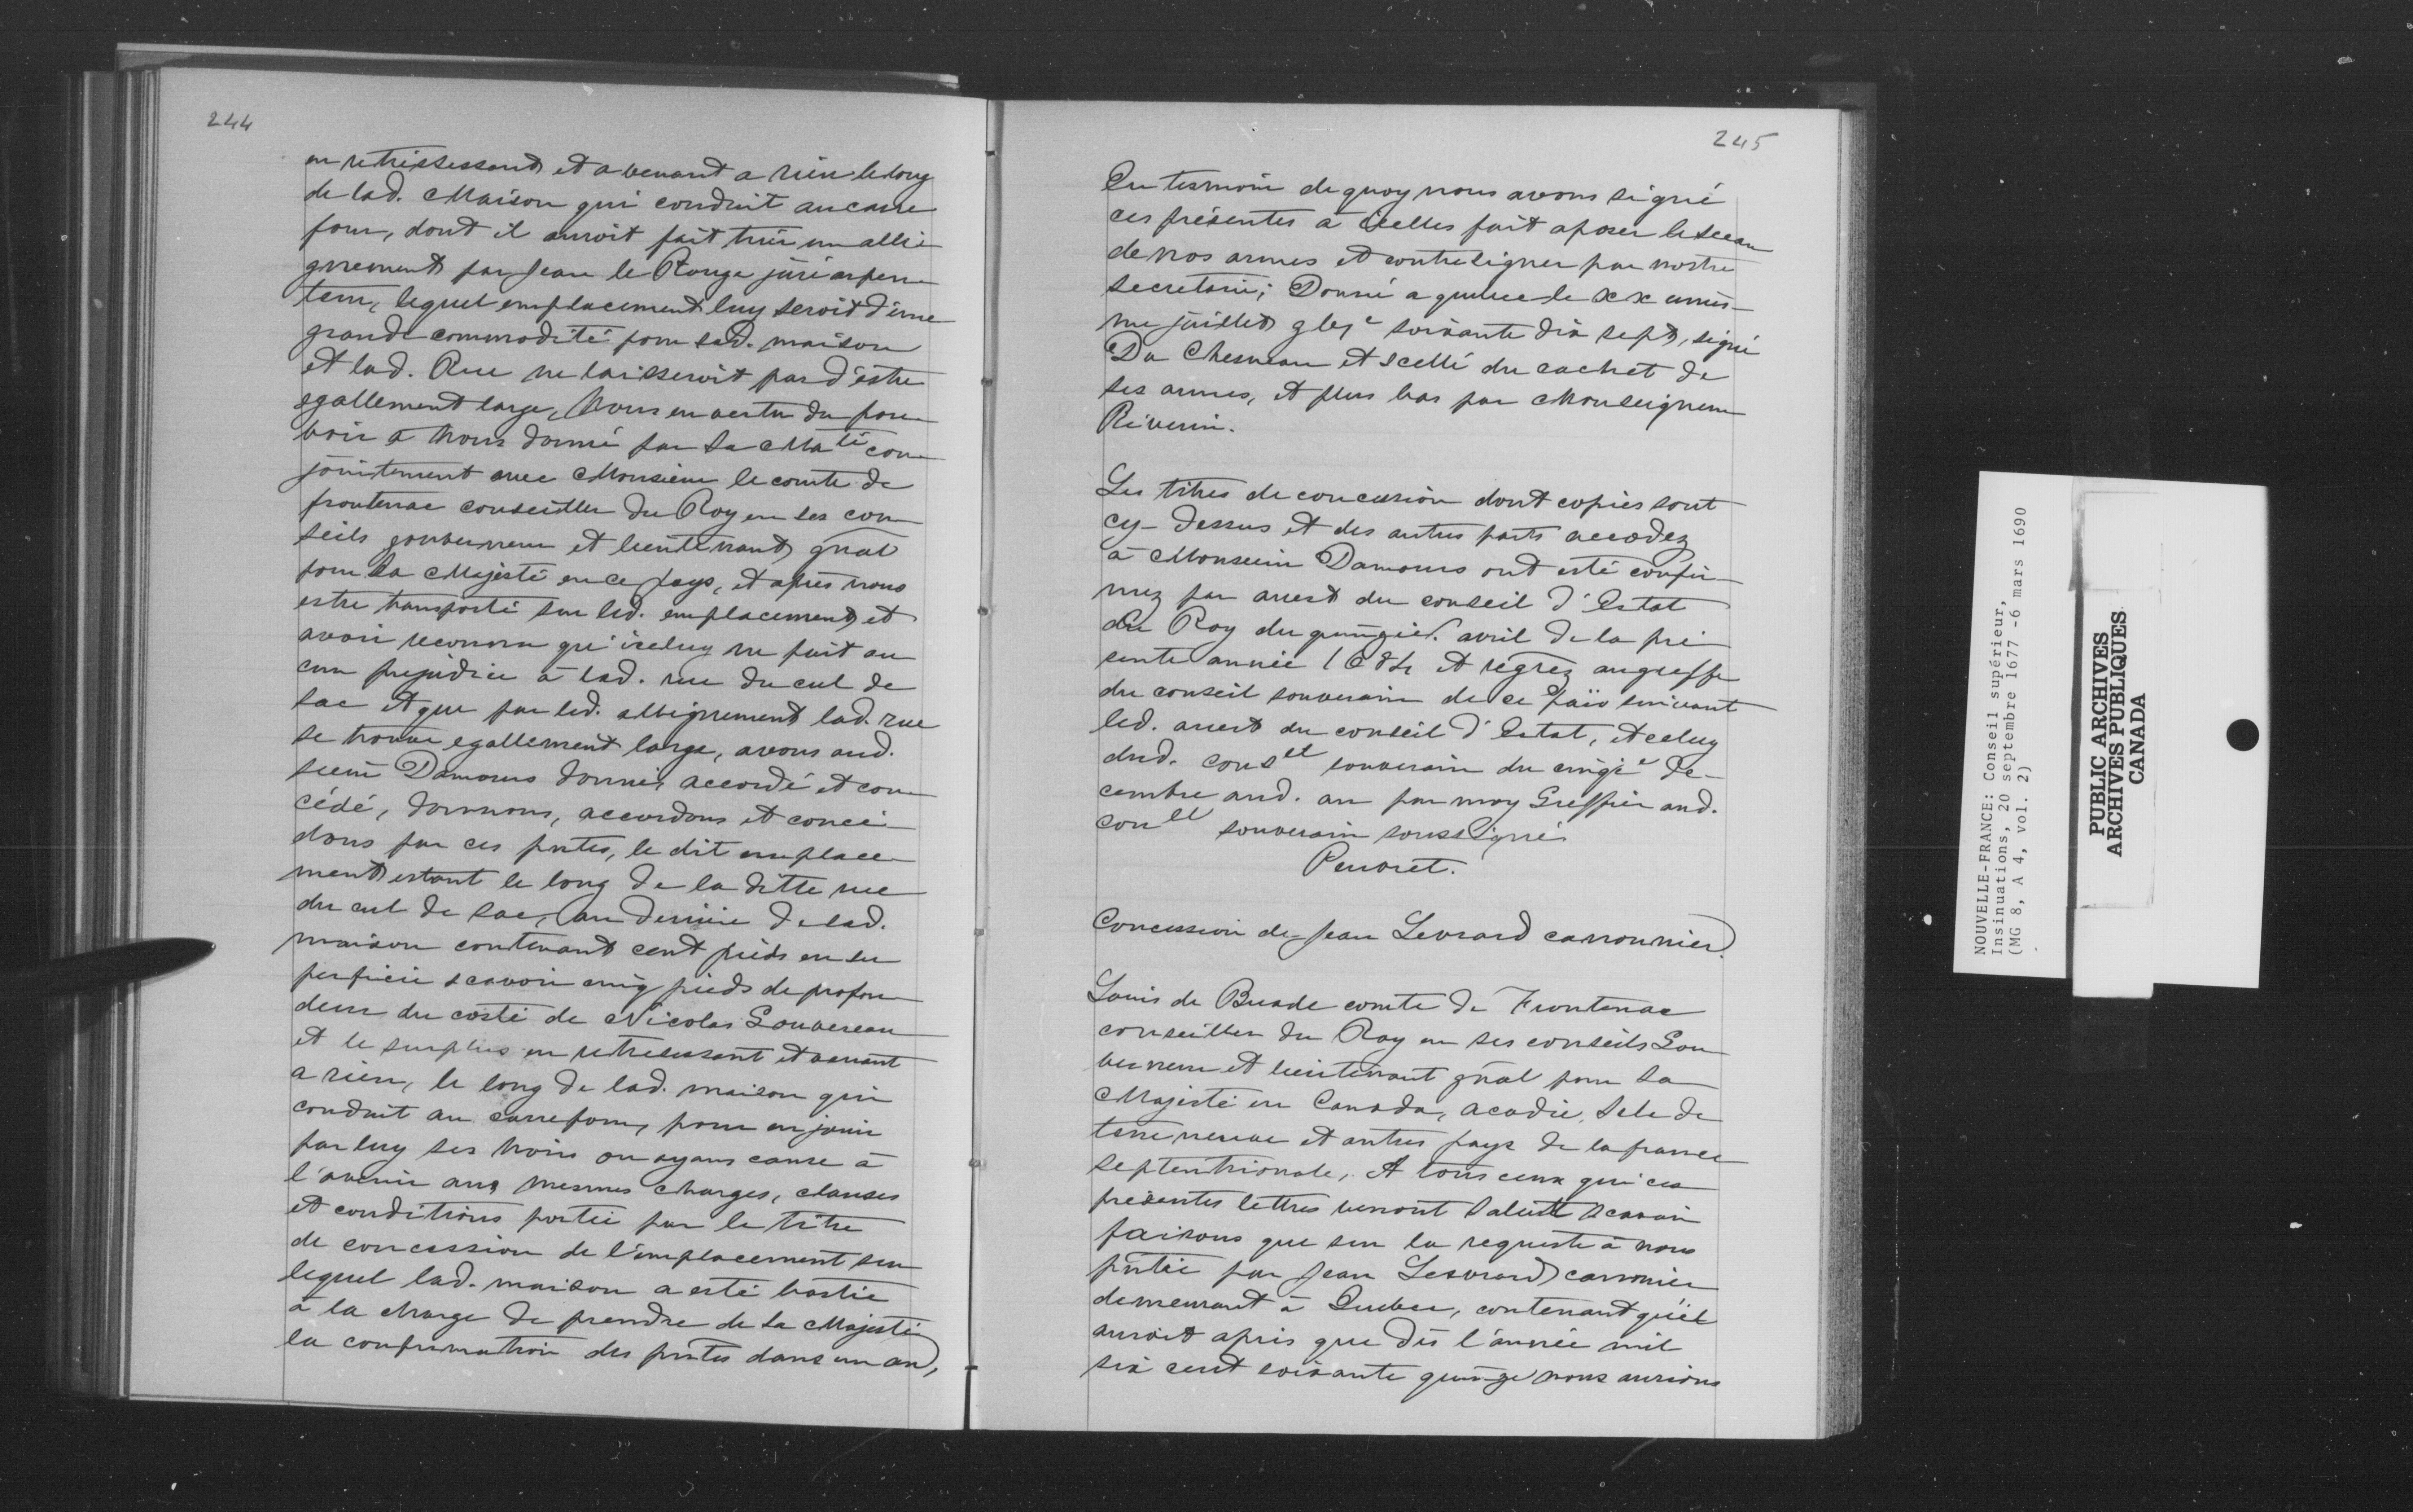 244
en retrississant et a venant a rien le long
de lad. Maison qui conduit au carre
four, dont il auroit fait tirer un alli-
gnement par Jean le Rouge juré arpen-
teur, lequel emplacement luy seroit d'une
grande commodité pour sad. maison
et lad. Rue ne laisseroit pas d'estre
egallement large, Nous en vertu du pou-
voir à Nous donné par Sa Ma.té con-
jointement avec Monsieur le comte de
frontenac conseiller du Roy en ses con-
seils gouverneur et lieutenant gñal
pour Sa Majesté en ce pays, et après nous
estre transporté sur led. emplacement, et
avoir reconnu qu'iceluy ne fait au-
cun prejudice à lad. rue du cul de
sac et que par led. allignement lad. rue
se trouve egallement large, avons aud.
sieur Damours donné, accordé et con-
cédé, donnons, accordons et concé-
dons par ces pñtes, le dit emplace-
ment estant le long de la ditte rue
du cul de sac, au derriere de lad.
maison contenant cent pieds en su-
perficie scavoir cinq pieds de profon-
deur du costé de Nicolas Gouvereau
et le surplus en retrecissant et venant
a rien, le long de lad. maison qui
conduit au carrefour, pour en jouir
par luy ses hoirs ou ayans cause à
l'avenir aux mesmes charges, clauses
et conditions portée par le titre
de concession de l'emplacement sur
lequel lad. maison a esté bastie
à la charge de prendre de Sa Majesté
la confirmation des pñtes dans un an,
245
En tesmoin de quoy nous avons signé
ces présentes à icelles fait aposer le sceau
de nos armes et contresigner par nostre
secretaire; Donné a quebec le xx unies-
me juillet gbjc soixante dix sept, signé
Du Chesneau et scellé du cachet de
ses armes, et plus bas par Monseigneur
Réverin.
Les titres de concession dont copies sont
cy-dessus et des autres parts accordez
à Monsieur Damours ont esté confir-
mez par arrest du conseil d'Estat
du Roy du quinzie. avril de la pré-
sente année 1684 et regrez au greffe
du conseil souverain de ce païs suivant
led. arrest du conseil d'Estat, et celuy
dud. conset souverain du cinqie De-
cembre aud. an par moy Greffier aud.
conet souverain soussigné
Peuvret.
Concession de Jean Levrard canonnier.
Louis de Buade comte de Frontenac
conseiller du Roy en ses conseils Gou-
verneur et lieutenant gñal pour Sa
Majesté en Canada, acadie, Isle de
terre neuve et autres pays de la france
septentrionale, A tous ceux qui ces
présentes lettres verront Salut Scavoir
faisons que sur la requeste à nous
pñtée par Jean Lesvrard canonier
demeurant à Quebec, contenant qu'il
auroit apris que dès l'année mil
six cent soixante quinze nous aurions
NOUVELLE-FRANCE: Conseil supérieur,
Insinuations, 20 septembre 1677 -6 mars 1690
(MG 8, A 4, vol. 2)
PUBLIC ARCHIVES
ARCHIVES PUBLIQUES
CANADA